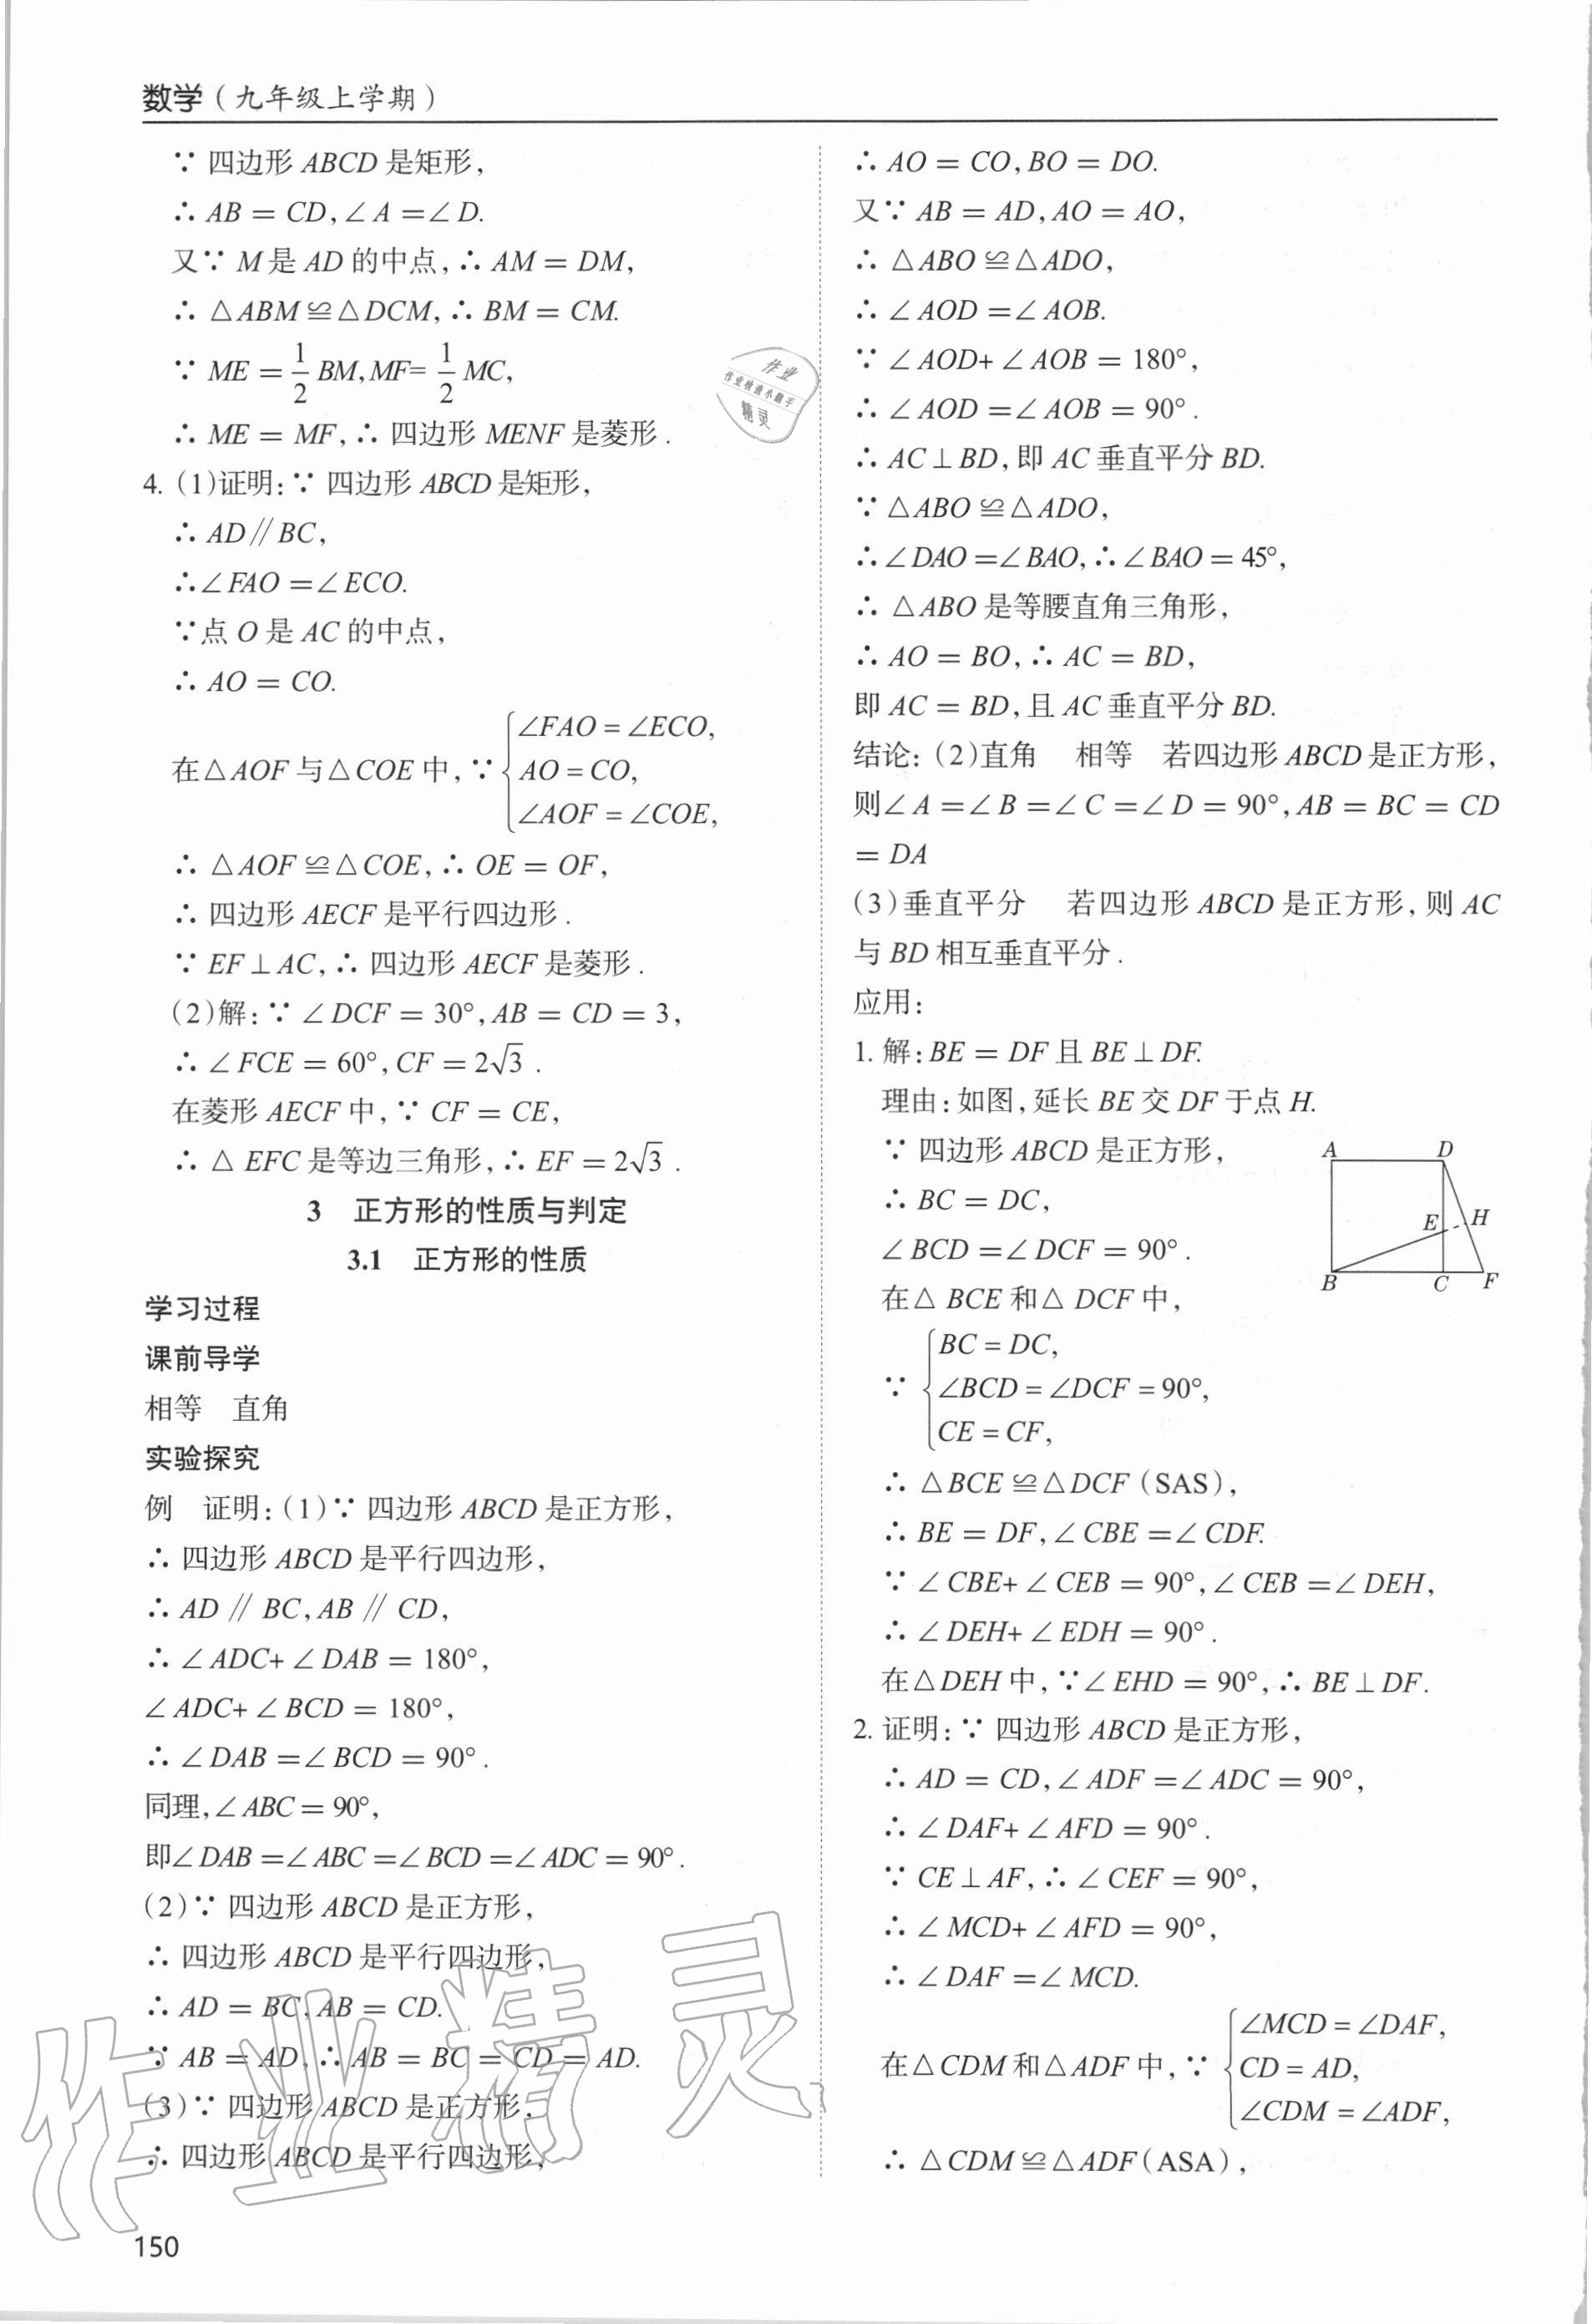 数学(九年级上学期)
∵ 四边形 ABCD 是矩形,
∴ AB = CD,∠A =∠D.
又∵ M是 AD 的中点,∴ AM = DM,
∴ △ABM≌△DCM,∴ BM = CM.
∵ ME = 1/2 BM,MF= 1/2 MC,
∴ ME = MF,∴ 四边形 MENF 是菱形.
4. (1)证明:∵ 四边形 ABCD 是矩形,
∴ AD∥BC,
∴∠FAO =∠ECO.
∵点 O 是 AC 的中点,
∴ AO = CO.
在△AOF 与△COE 中,∵ {∠FAO = ∠ECO,
AO = CO,
∠AOF = ∠COE,
∴ △AOF≌△COE,∴ OE = OF,
∴ 四边形 AECF 是平行四边形.
∵ EF⊥AC,∴ 四边形 AECF 是菱形.
(2)解:∵ ∠DCF = 30°,AB = CD = 3,
∴ ∠FCE = 60°,CF = 2√3 .
在菱形 AECF 中,∵ CF = CE,
∴ △ EFC 是等边三角形,∴ EF = 2√3 .
3 正方形的性质与判定
3.1 正方形的性质
学习过程
课前导学
相等 直角
实验探究
例 证明:(1)∵ 四边形 ABCD 是正方形,
∴ 四边形 ABCD 是平行四边形,
∴ AD ∥ BC,AB ∥ CD,
∴ ∠ADC+ ∠DAB = 180°,
∠ADC+ ∠BCD = 180°,
∴ ∠DAB =∠BCD = 90°.
同理,∠ABC = 90°,
即∠DAB =∠ABC =∠BCD =∠ADC = 90°.
(2)∵ 四边形 ABCD 是正方形,
∴ 四边形 ABCD 是平行四边形,
∴ AD = BC,AB = CD.
∵ AB = AD,∴ AB = BC = CD = AD.
(3)∵ 四边形 ABCD 是正方形,
∴ 四边形 ABCD 是平行四边形,
150
∴ AO = CO,BO = DO.
又∵ AB = AD,AO = AO,
∴ △ABO≌△ADO,
∴ ∠AOD =∠AOB.
∵ ∠AOD+ ∠AOB = 180°,
∴ ∠AOD =∠AOB = 90°.
∴ AC⊥BD,即 AC 垂直平分 BD.
∵ △ABO≌△ADO,
∴∠DAO =∠BAO,∴∠BAO = 45°,
∴ △ABO 是等腰直角三角形,
∴ AO = BO,∴ AC = BD,
即 AC = BD,且 AC 垂直平分 BD.
结论:(2)直角 相等 若四边形 ABCD 是正方形,
则∠A =∠B =∠C =∠D = 90°,AB = BC = CD
= DA
(3)垂直平分 若四边形 ABCD 是正方形,则 AC
与 BD 相互垂直平分.
应用:
1. 解:BE = DF 且 BE⊥DF.
理由:如图,延长 BE 交 DF 于点 H.
∵ 四边形 ABCD 是正方形,
∴ BC = DC,
∠BCD =∠DCF = 90°.
在△ BCE 和△ DCF 中,
∵ {BC = DC,
∠BCD = ∠DCF = 90°,
CE = CF,
A D
E H
B C F
∴ △BCE≌△DCF(SAS),
∴ BE = DF,∠CBE =∠CDF.
∵ ∠CBE+ ∠CEB = 90°,∠CEB =∠DEH,
∴ ∠DEH+ ∠EDH = 90°.
在△DEH 中,∵∠EHD = 90°,∴ BE⊥DF.
2. 证明:∵ 四边形 ABCD 是正方形,
∴ AD = CD,∠ADF =∠ADC = 90°,
∴ ∠DAF+ ∠AFD = 90°.
∵ CE⊥AF,∴ ∠CEF = 90°,
∴ ∠MCD+ ∠AFD = 90°,
∴ ∠DAF =∠MCD.
在△CDM 和△ADF 中,∵ {∠MCD = ∠DAF,
CD = AD,
∠CDM = ∠ADF,
∴ △CDM≌△ADF(ASA),
作业
作业检查小助手
精灵
作业精灵